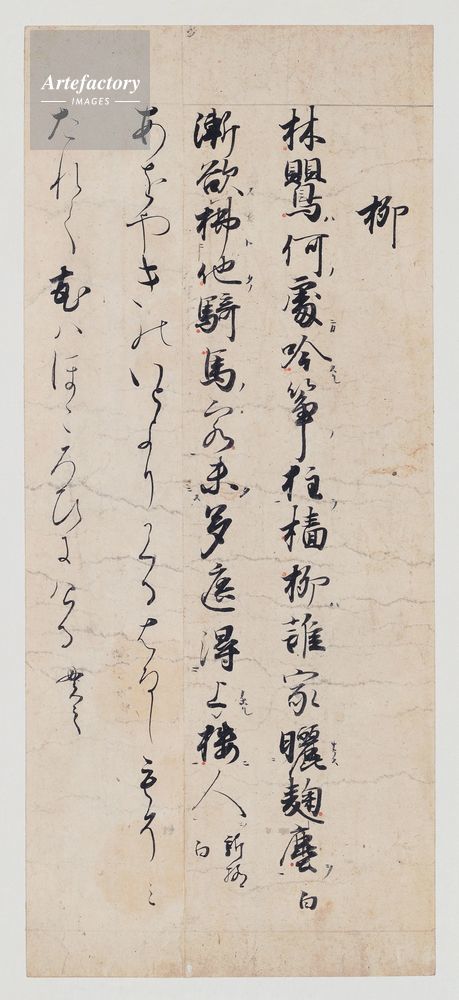 Artefactory
IMAGES
柳
林鶯何處吟箏柱墻柳誰家曬麹塵 白
漸欲拂他騎馬客未多遮得上樓人 白
あをやきのいとよりかくるはるしもそミ
たれて花ハほころひにける 貫之